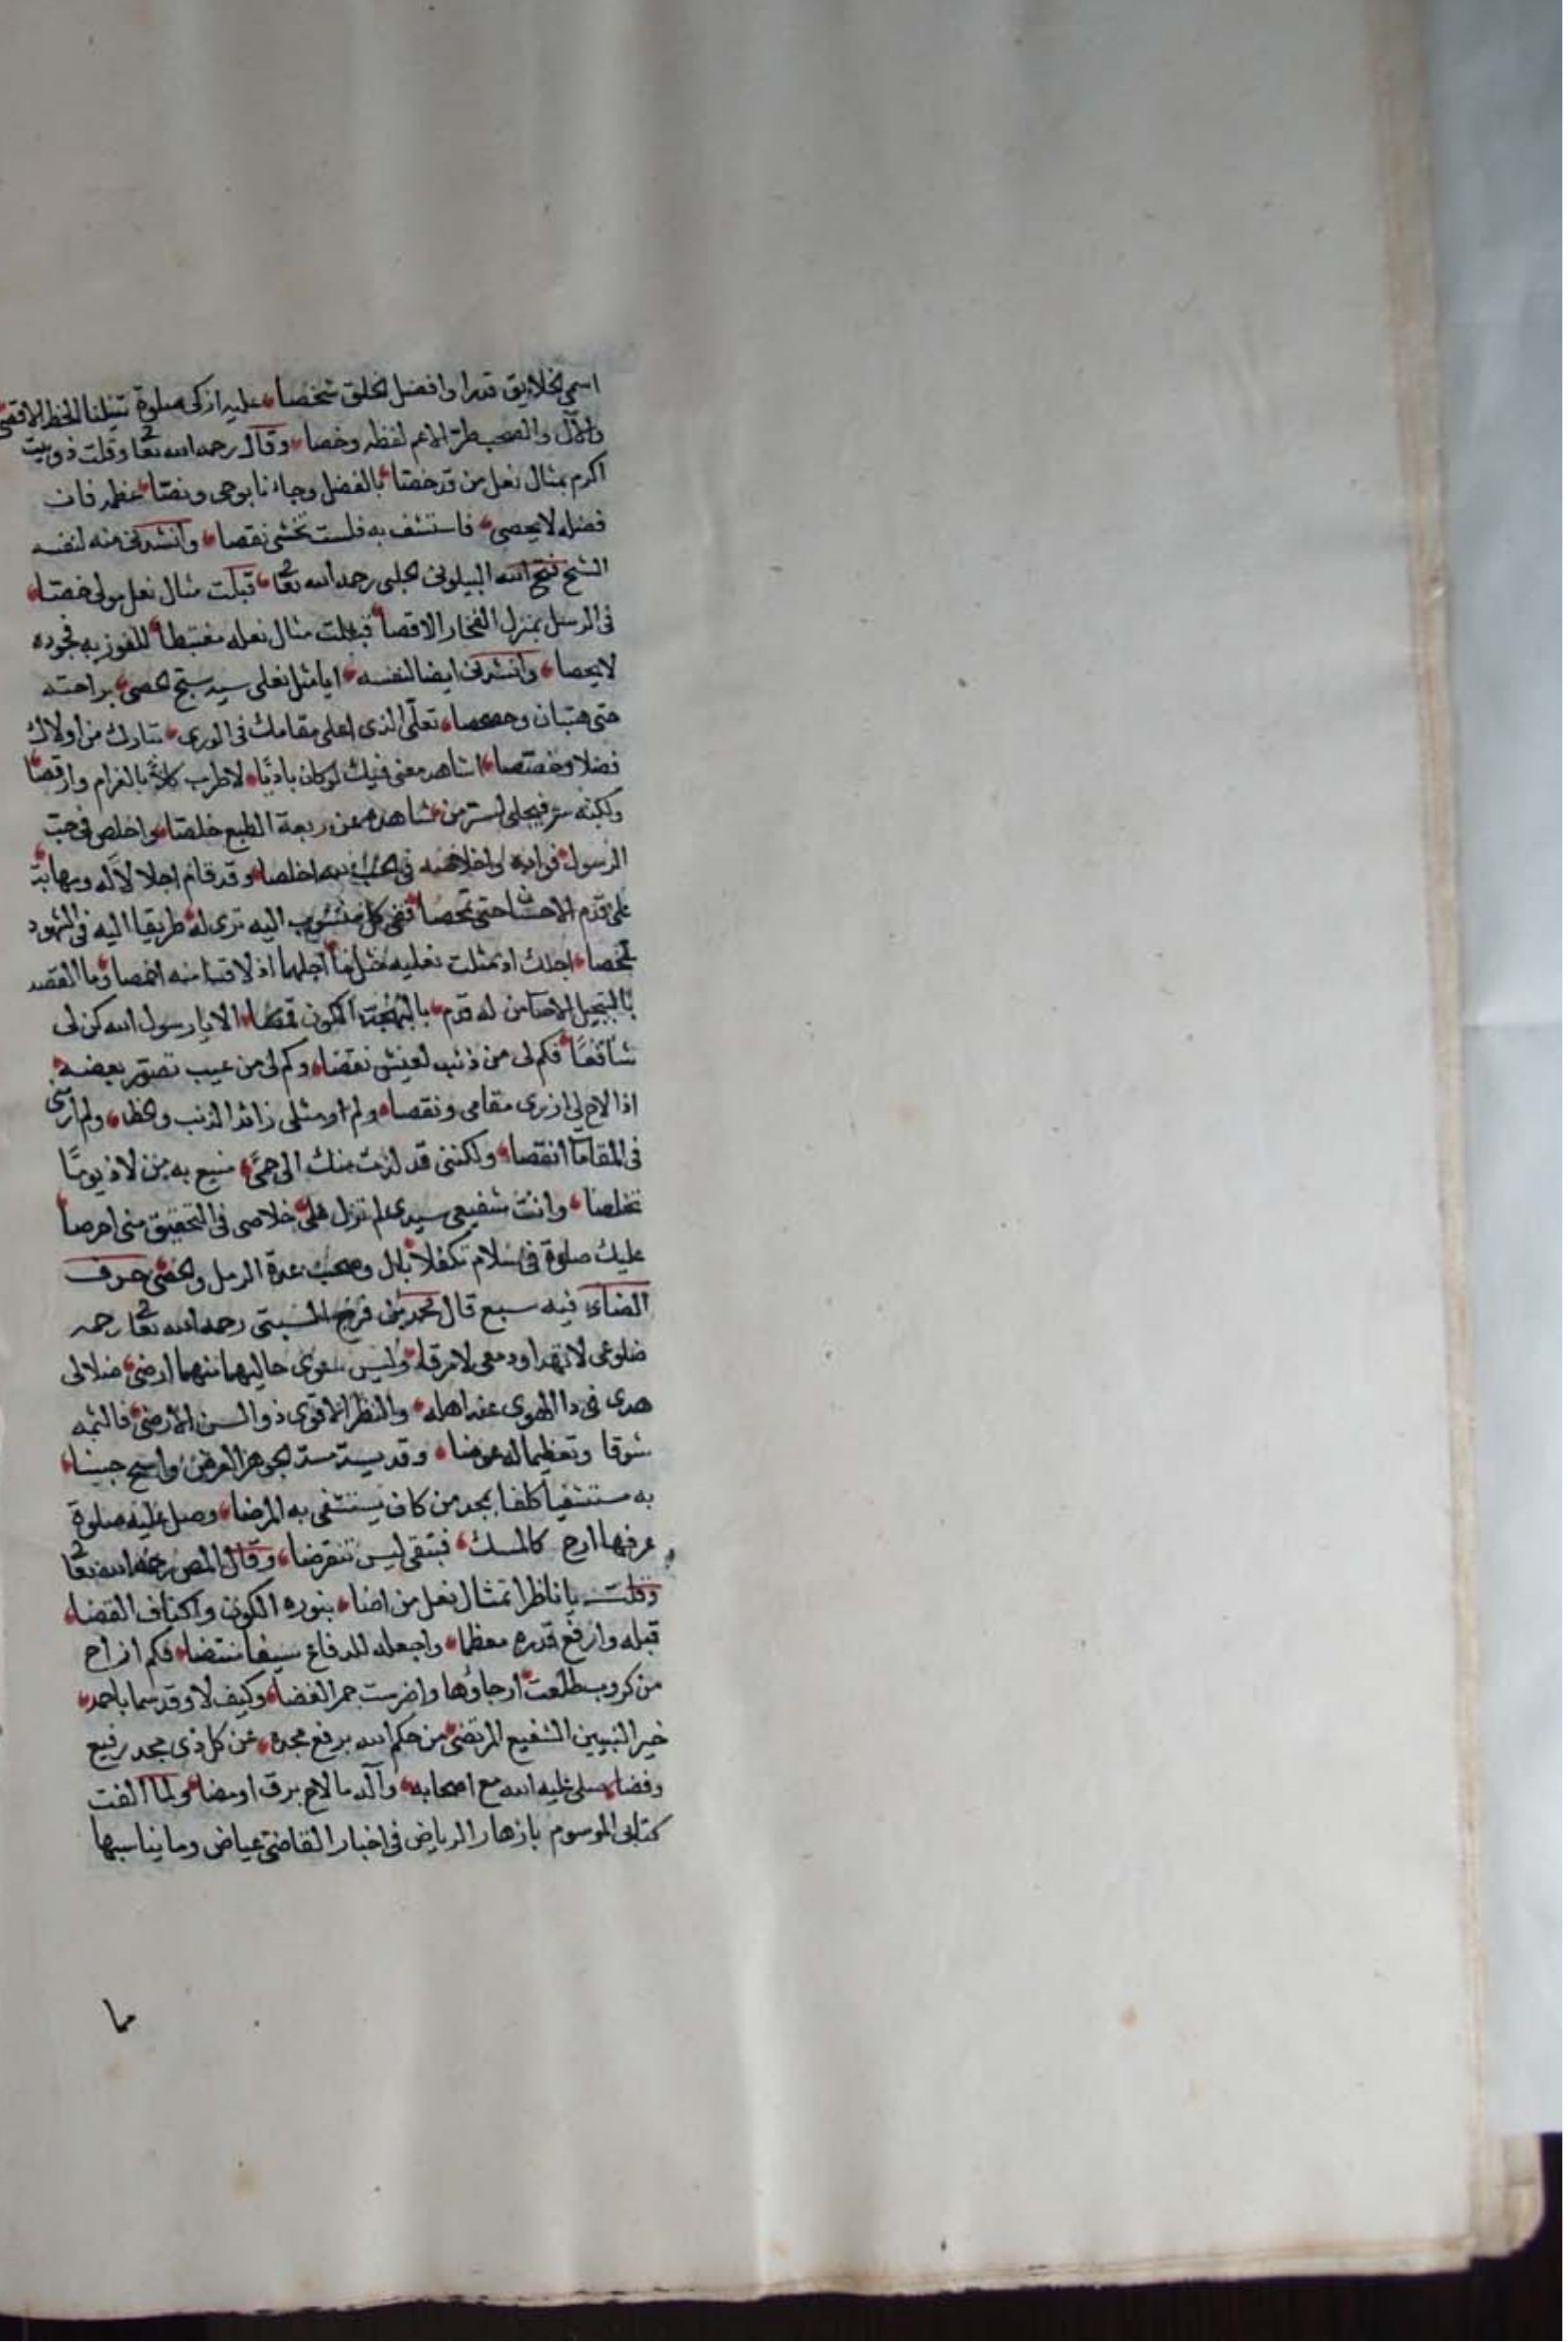 اسمى الخلايق قدرا وافضل الخلق شخصا عليه ازكى صلوة تنيلنا الحظ الاقصى
والآل والصحب طرا لاعم لفظه وخصا وقال رحمه الله تعا وقلت ذو بيت
اكرم بمثال نعل من قد خصا بالفضل وجاءنا بوحى ونصا عظم فان
فضله لا يحصى فاستشف به فلست تخشى نقصا وانشدنى منه لنفسه
الشيخ فتح الله البيلونى الحلبى رحمه الله تعا قبلت مثال نعل مولى خصا
فى الرسل بمنزل الفخار الاقصا فبقبلت مثال نعله مغتبطا للفوز به فجوده
لا يحصا وانشدنى ايضا لنفسه ايا مثل نعلى سيد سبح الحصى براحته
حتى استبان وحصحصا تعلى الذى اعلى مقامك فى الورى تبارك من اولاك
فضلا وخصصا اشاهد معنى فيك لو كان باديا لاطرب كلا بالغرام وارقصا
ولكنه سر فيجلى لسر من شاهده من ربعة الطبع خلصا واخلص فى حب
الرسول فواده واخلاصه فى الحب اخلصا وقد قام اجلالا له ومهابة
على قدم الاحسان حتى تمحصا ففى كل منسوب اليه ترى له طريقا اليه فى الشهود
تمحصا اجلك اذ مثلت نعليه اجلها اذ لاقتا منه اخمصا وما القصد
بالتبجيل الا من له قدم الكون الا يا رسول الله كن لى
شافعا فكم لى من ذنب لعيش نغصا وكم لى من عيب تصور بعضه
اذا لاح لى ازرى مقامى ونقصا ولم ار مثلى زائد الذنب والخطا ولم ارى
فى المقامات انقصا ولكننى قد لذت منك الى حمى منيع به من لاذ يوما
تخلصا وانت شفيعى سيدى لم تزل على خلاصى فى التحقيق منى احرصا
عليك صلوة فى سلام تكفلا بال وصحب عدة الرمل والحصى حرف
الضاد فيه سبع قال محمد بن فرج السبتى رحمه الله تعا رحمه
ضلوعى لا تهدا ودمعى لا يرقا وليس سوى حاليهما منهما ارضى ضلالى
هدى فى ذا الهوى عند اهله والنظر الاقوى ذو السن الارضى فالثمه
شوقا وتعظيما له عوضا وقد يسد مسد الجوهر العرض وامسح جبينا
به مستشفيا كلفا بمجد من كان يستشفى به المرضا وصل عليه صلوة
عرفها ارج كالمسك فبتقى ليس تنقرضا وقال المص رحمه الله تعا
وقلت يا ناظرا تمثال نعل من اضا بنوره الكون واكناف الفضا
قبله وارفع قدره معظما واجعله للدفاع سيفا منتضا فكم ازاح
من كروب طلعت ارجاؤها واضرمت جمر الغضا وكيف لا وقد سما باحمد
خير النبيين الشفيع المرتضى من حكم الله برفع مجده عن كل ذى مجد رفيع
وفضا صلى عليه الله مع اصحابه وآله ما لاح برق اومضا ولما الفت
كتابى الموسوم بازهار الرياض فى اخبار القاضى عياض وما يناسبها
مما